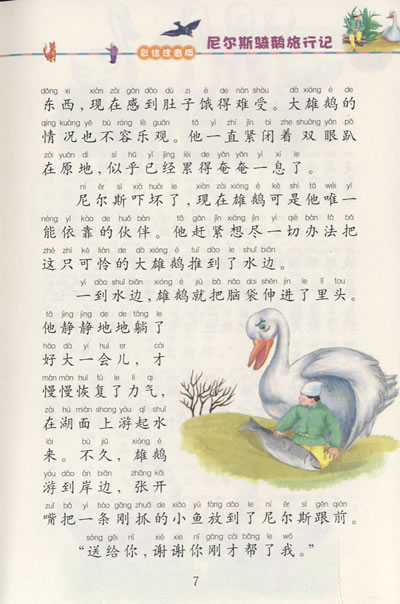 彩绘注音版
尼尔斯骑鹅旅行记
dōng xi xiàn zài gǎn dào dù zi è de nán shòu dà xióng é de
东西，现在感到肚子饿得难受。大雄鹅的
qíng kuàng yě bù róng lè guān tā yì zhí jǐn bì zhe shuāng yǎn pā
情况也不容乐观。他一直紧闭着双眼趴
zài yuán dì sì hū yǐ jīng lèi de yǎn yǎn yì xī le
在原地，似乎已经累得奄奄一息了。
ní ěr sī xià huài le xiàn zài xióng é kě shì tā wéi yī
尼尔斯吓坏了，现在雄鹅可是他唯一
néng yī kào de huǒ bàn tā gǎn jǐn xiǎng jìn yí qiè bàn fǎ bǎ
能依靠的伙伴。他赶紧想尽一切办法把
zhè zhī kě lián de dà xióng é tuī dào le shuǐ biān
这只可怜的大雄鹅推到了水边。
yí dào shuǐ biān xióng é jiù bǎ nǎo dai shēn jìn le lǐ tou
一到水边，雄鹅就把脑袋伸进了里头。
tā jìng jìng de de tǎng le
他静静地地躺了
hǎo dà yí huì er cái
好大一会儿，才
màn màn huī fù le lì qi
慢慢恢复了力气，
zài hú miàn shang yóu qǐ shuǐ
在湖面上游起水
lái bù jiǔ xióng é
来。不久，雄鹅
yóu dào àn biān zhāng kāi
游到岸边，张开
zuǐ bǎ yì tiáo gāng zhuā de xiǎo yú fàng dào le ní ěr sī gēn qián
嘴把一条刚抓的小鱼放到了尼尔斯跟前。
sòng gěi nǐ xiè xie nǐ gāng cái bāng le wǒ
“送给你，谢谢你刚才帮了我。”
7